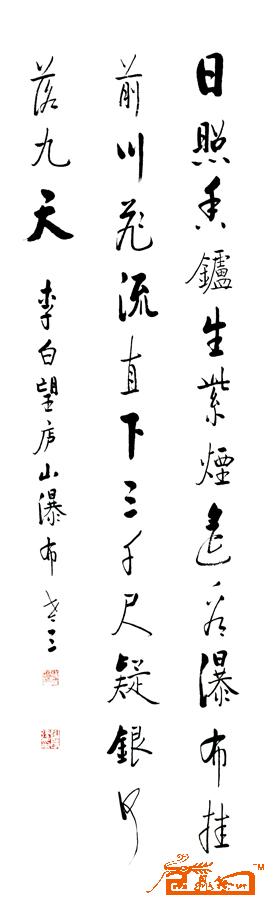 日照香鑪生紫煙遙看瀑布挂
前川飛流直下三千尺疑銀河
落九天
李白望庐山瀑布